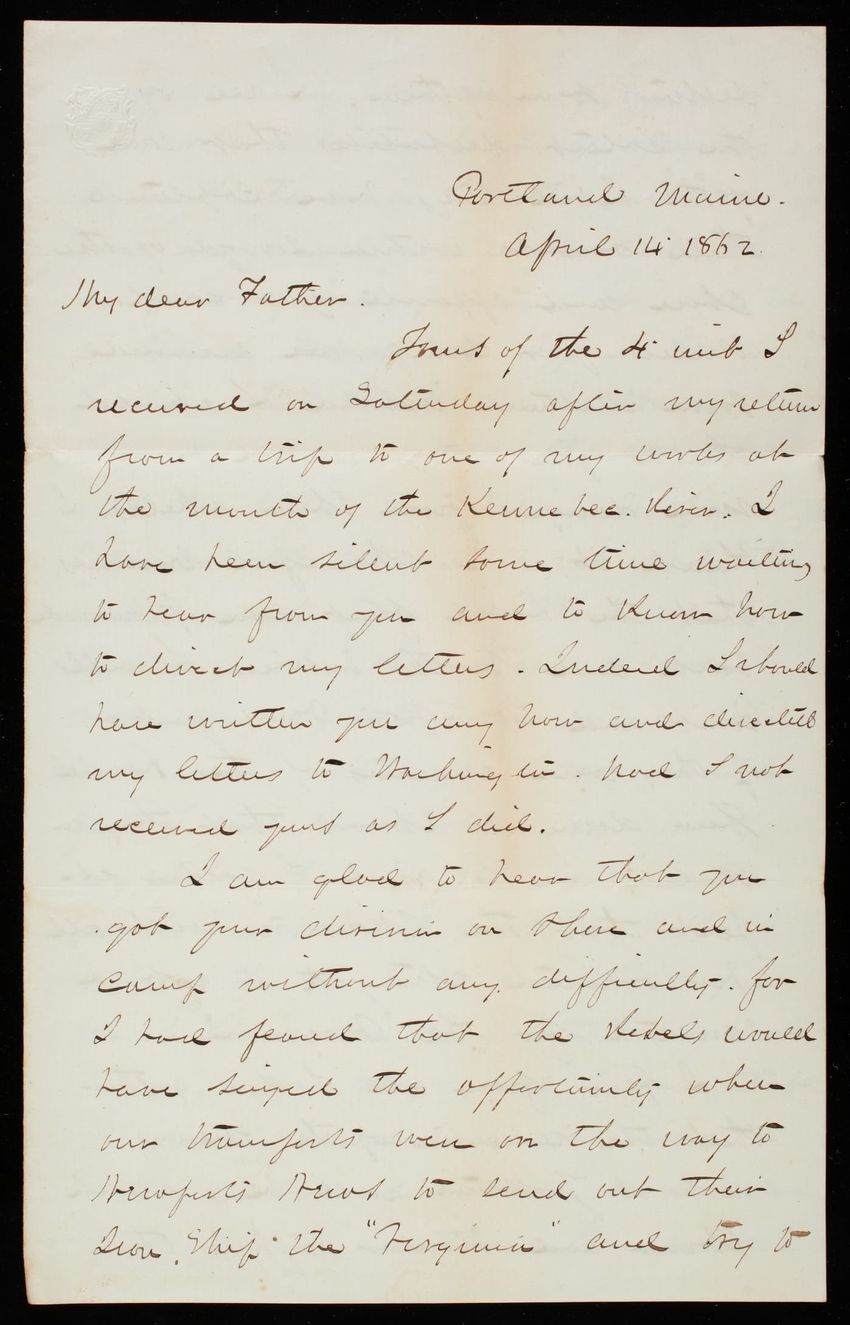 Portland Maine.
April 14 1862.
My dear Father.
Yours of the 4 inst I
received on Saturday after my return
from a trip to one of my works at
the mouth of the Kennebec. River. I
have been silent some time waiting
to hear from you and to Know how
to direct my letters. Indeed I should
have written you any how and directed
my letters to Washington. had I not
received yours as I did.
I am glad to hear that you
got your division on shore and in
camp without any difficulty. for
I had feared that the Rebels would
have seized the opportunity when
our transports were on the way to
Newports News to send out their
Iron Ship the "Virginia" and try to